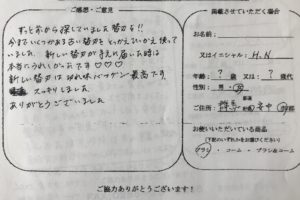 ご感想・ご意見
ずっと前から探していました替刃を!!
今までいくつかまるい替刃をとっかえひっかえ使って
いました。新しい替刃が手元に届いた時は
本当にうれしかったです♡♡♡
新しい替刃は切れ味バツグン最高です
スッキリしました
ありがとうございました
掲載させていただく場合
お名前：
又はイニシャル： H.N
年齢： ? 歳 又は ? 歳代
性別： 男・女
ご住所： 府中
都道
府県
お使いいただいている商品
(下記のいずれかをお選びください)
ブラシ ・ コーム ・ ブラシ&コーム
ご協力ありがとうございます!